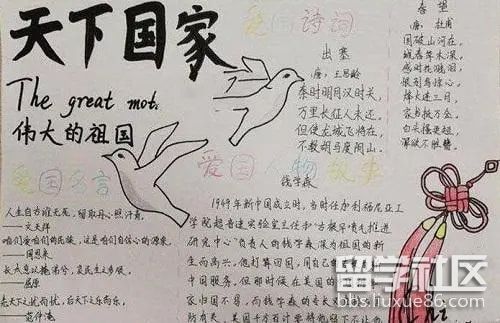 天下国家
The great mot.
伟大的祖国
爱国诗词
出塞
唐：王昌龄
秦时明月汉时关，
万里长征人未还，
但使龙城飞将在，
不教胡马度阴山。
春望
唐：杜甫
国破山河在，
城春草木深。
感时花溅泪，
恨别鸟惊心。
烽火连三月，
家书抵万金。
白头搔更短，
浑欲不胜簪。
爱国名言
人生自古谁无死，留取丹心照汗青。
——文天祥
咱们爱咱们的民族，这是咱们自信心的源泉。
——周恩来
长太息以掩涕兮，哀民生之多艰。
——屈原
先天下之忧而忧，后天下之乐而乐。
——范仲淹
爱国人物故事
钱学森
1949年新中国成立时，当时任加利福尼亚工
学院超音速实验室主任和“古根罕喷气推进
研究中心”负责人的钱学森，深为祖国的新
生而高兴。他打算回国，用自己的
中国服务。但那时候在美国的
家归国不易，而钱学森的专
留学社区
bbs.liuxue86.com